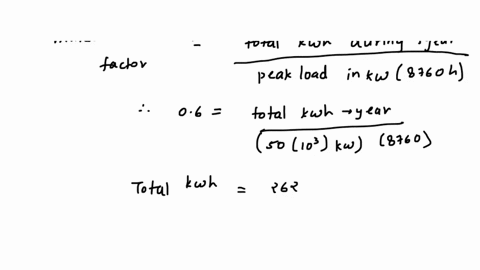 = total kwh during year
factor
peak load in kw (8760 h)
∴ 0.6 = total kwh → year
(50 (10³) kw) (8760)
Total kwh = 262